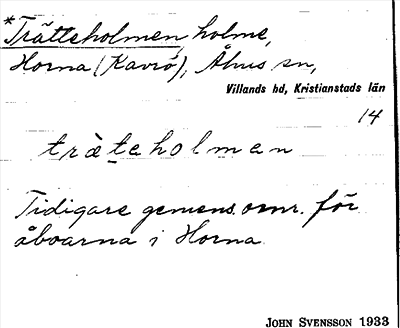 *Trätteholmen holme,
Horna (Kavrö), Åhus sn,
Villands hd, Kristianstads län
14
trät̲eholmen
Tidigare gemens. omr. för
åboarna i Horna.
JOHN SVENSSON 1933